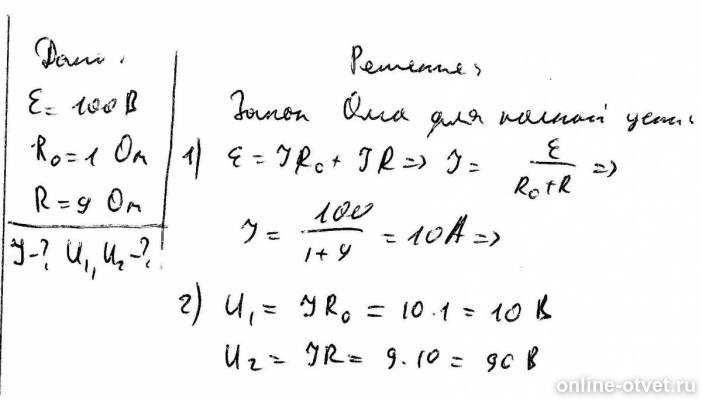 Дано:
ε = 100 В
R₀ = 1 Ом
R = 9 Ом
J-? U₁, U₂-?
Решение:
Закон Ома для полной цепи:
1) ε = JR₀ + JR => J = ε / (R₀+R) =>
J = 100 / (1+9) = 10A =>
2) U₁ = JR₀ = 10·1 = 10 В
U₂ = JR = 9·10 = 90 В
online-otvet.ru